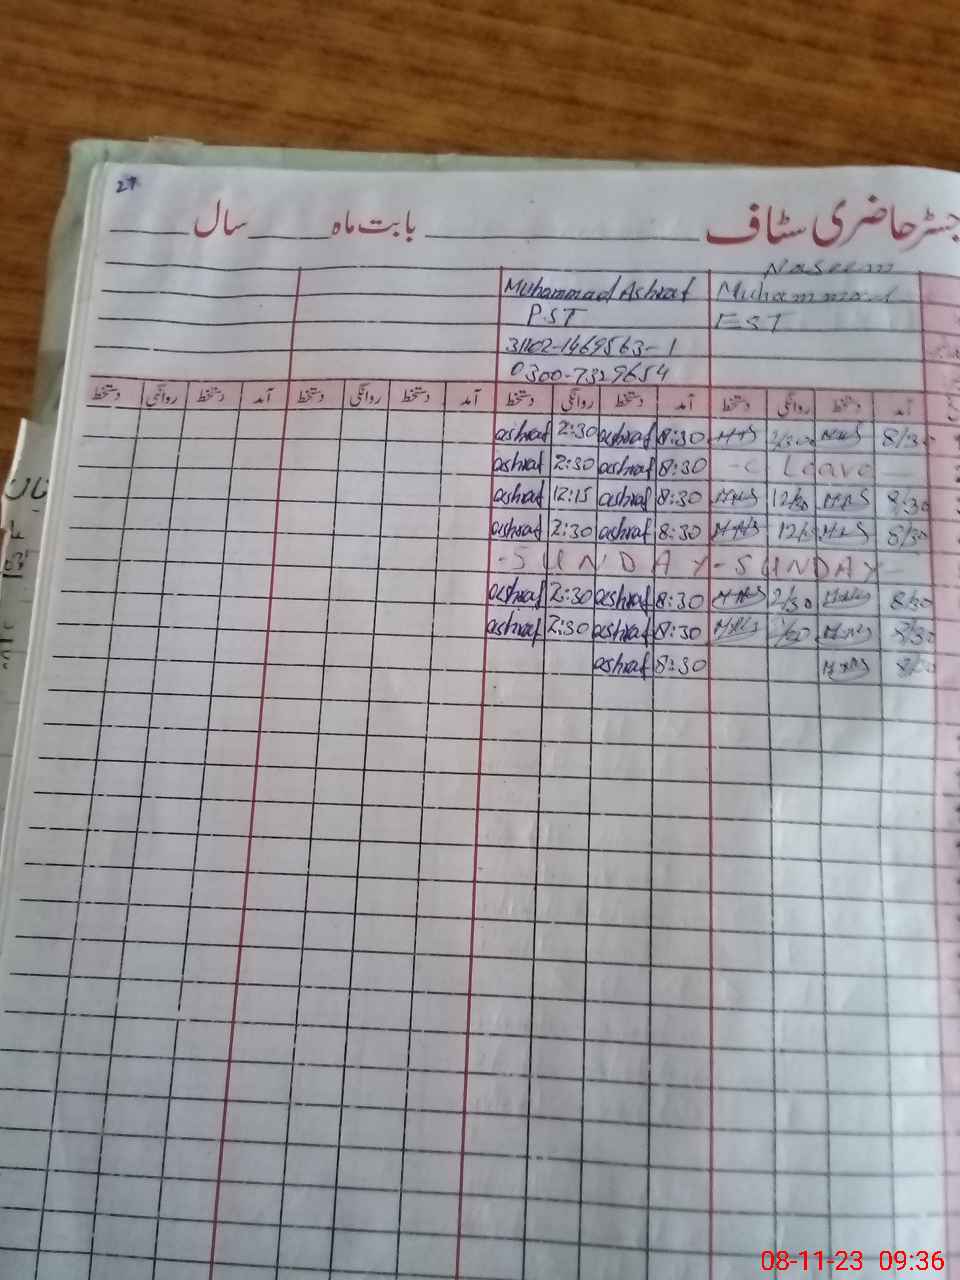 27
جسٹر حاضری سٹاف ______ بابت ماہ ______ سال ______
Naseem
Muhammad Ashraf Muhammad
PST EST
31102-1469563-1
0300-7329654
آمد دستخط روانگی دستخط آمد دستخط روانگی دستخط آمد دستخط روانگی دستخط آمد دستخط روانگی دستخط
ashraf 2:30 ashraf 8:30 8/30
ashraf 2:30 ashraf 8:30 - C Leave -
ashraf 12:15 ashraf 8:30 12/30 8/30
ashraf 2:30 ashraf 8:30 8/30
- SUNDAY - SUNDAY -
ashraf 2:30 ashraf 8:30 2/30 8/30
ashraf 2:30 ashraf 8:30 8/30
ashraf 8:30
08-11-23 09:36